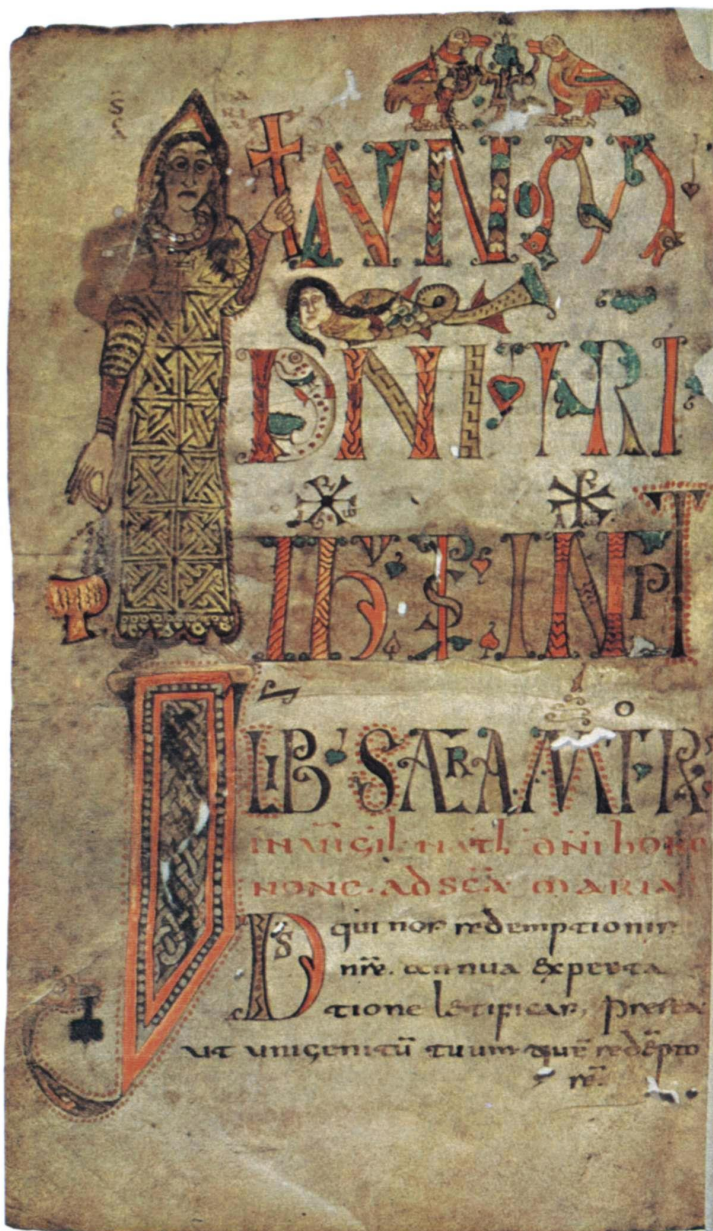 INN·OM
DNI·NRI
IHV·XPI·INCPT
LIB·SACRAMTOR
IN VIGIL NATL DNI HORA
NONE·AD SCA MARIA
DS qui nos redemptionis
nre annua expecta
tione letificas, presta
ut unigenitū tuum quē redēpto
rē